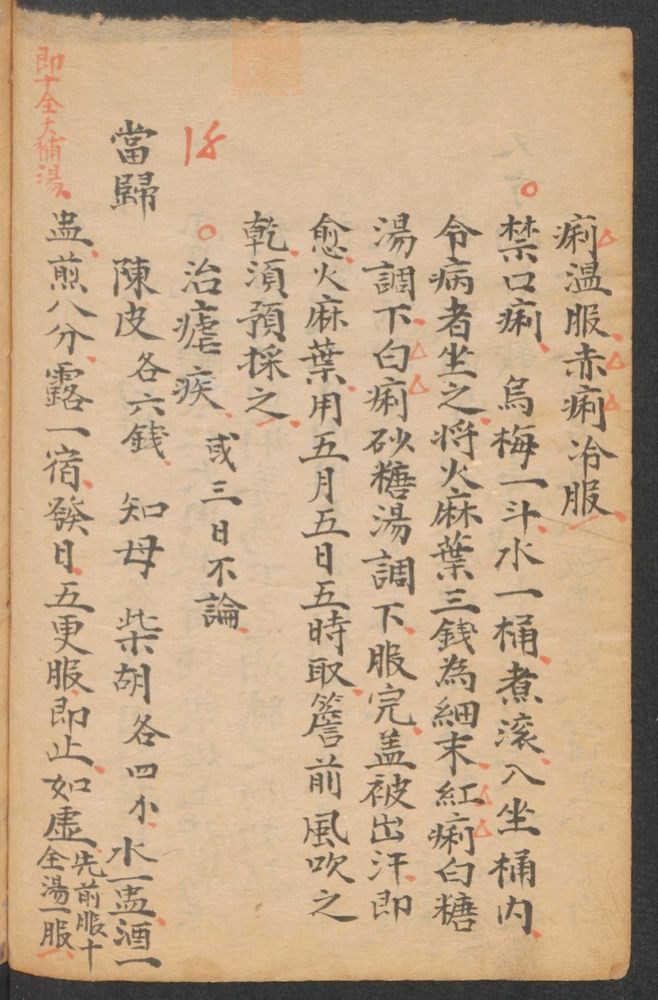 痢溫服赤痢冷服
禁口痢 烏梅一斗水一桶煮滚入坐桶内
令病者坐之将火麻葉三錢為細末紅痢白糖
湯調下白痢砂糖湯調下服完盖被出汗即
愈火麻葉用五月五日五時取簷前風吹之
乾須預採之
治瘧疾 或三日不論
當歸 陳皮各六錢 知母 柴胡各四小 水一盅酒一
盅煎八分露一宿發日五更服即止如虚先前服十
全湯一服
即十全大補湯